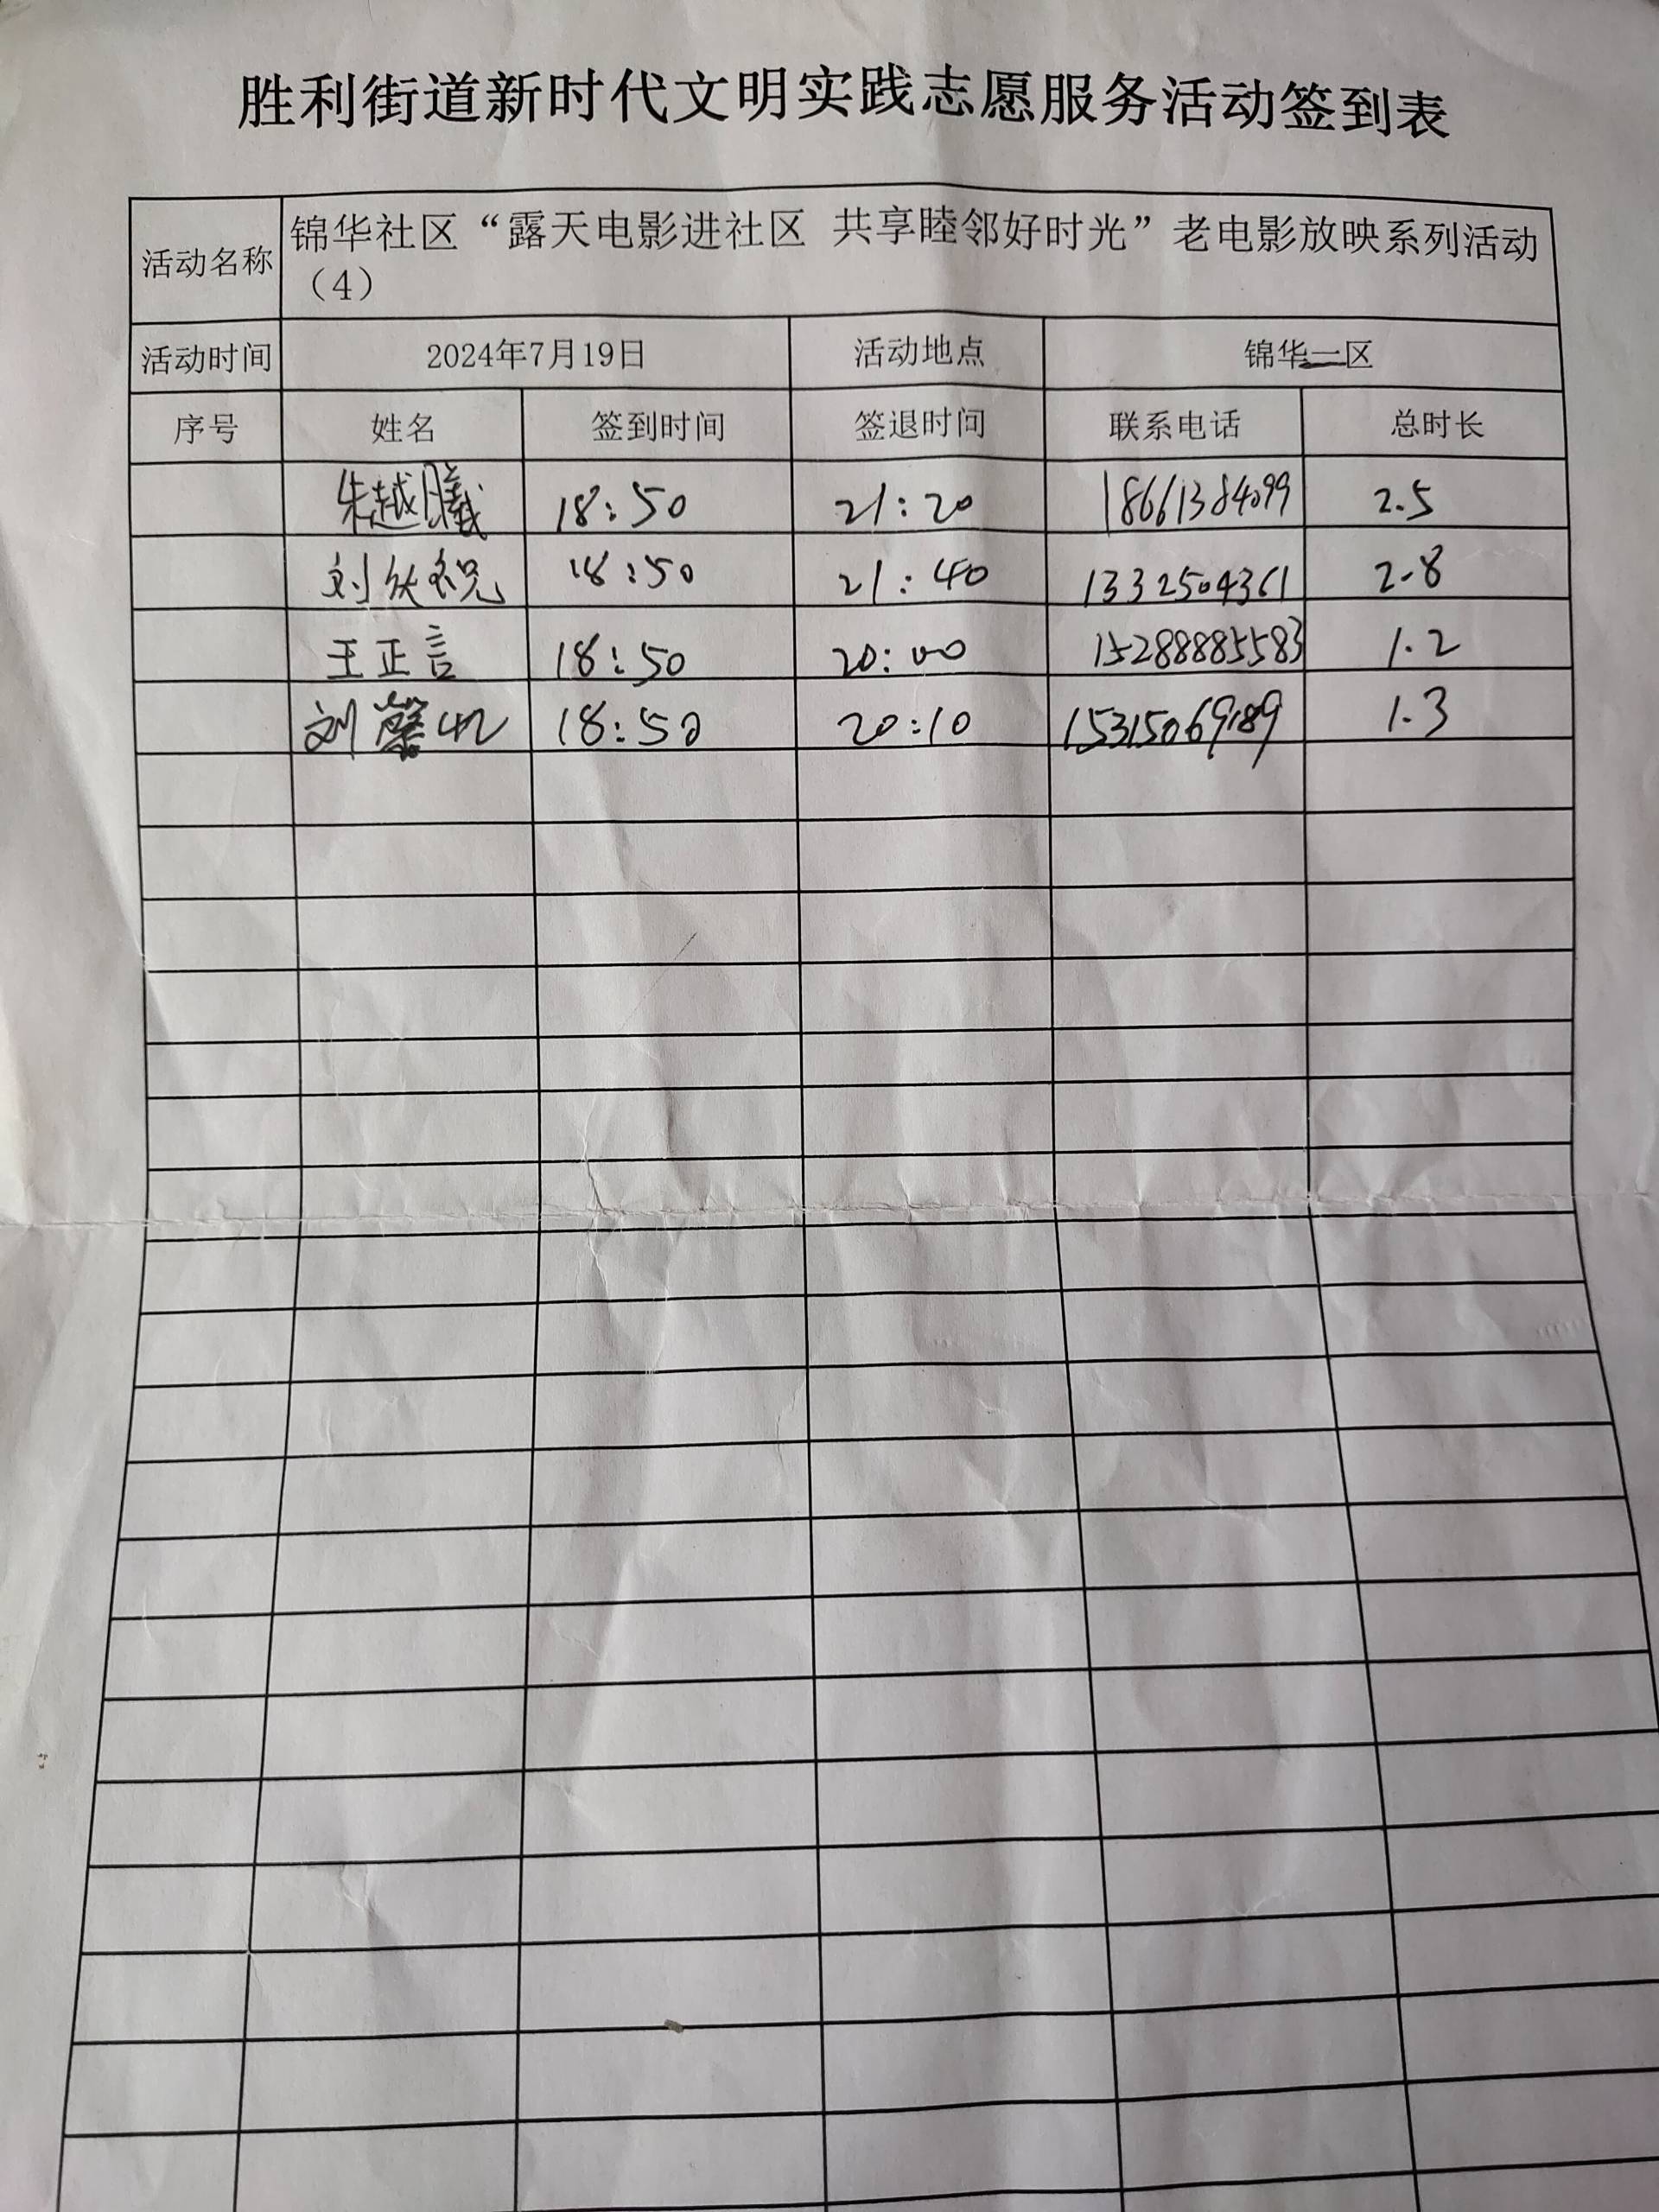 胜利街道新时代文明实践志愿服务活动签到表
活动名称 锦华社区“露天电影进社区 共享睦邻好时光”老电影放映系列活动
（4）
活动时间 2024年7月19日 活动地点 锦华二区
序号 姓名 签到时间 签退时间 联系电话 总时长
朱越曦 18:50 21:20 18661384099 2.5
刘 18:50 21:40 1332504361 2.8
王正言 18:50 20:00 15288885583 1.2
刘馨 18:50 20:10 15315069189 1.3